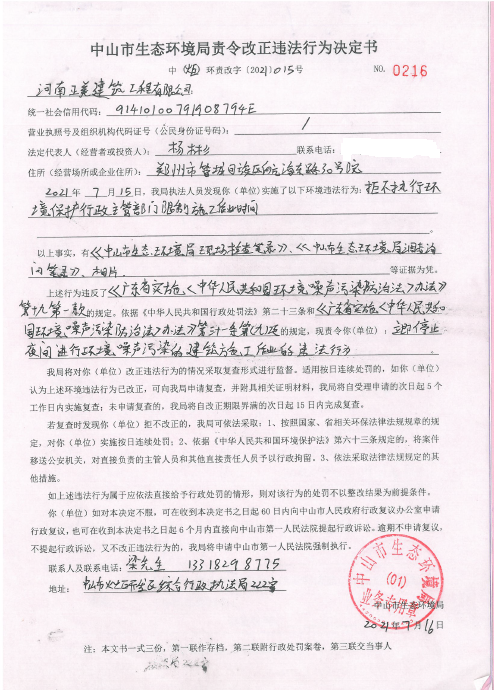 中山市生态环境局责令改正违法行为决定书
中（炬）环责改字〔2021〕015号 NO. 0216
河南正美建筑工程有限公司
统一社会信用代码：91410100791908794E
营业执照号及组织机构代码证号（公民身份证号码）： /
法定代表人（经营者或投资人）：杨彬 联系电话：
住所（经营场所或企业住所）：郑州市管城回族区向海东路30号院
2021年7月15日，我局执法人员发现你（单位）实施了以下环境违法行为：拒不执行环
境保护行政主管部门限制施工作业时间
以上事实，有《中山市生态环境局现场检查笔录》、《中山市生态环境局调查询
问笔录》、相片 等证据为凭。
上述行为违反了《广东省实施〈中华人民共和国环境噪声污染防治法〉办法》
第十九第一款的规定。依据《中华人民共和国行政处罚法》第二十三条和《广东省实施〈中华人民共和
国环境噪声污染防治法〉办法》第三十一条第九项的规定，现责令你（单位）：立即停止
夜间进行环境噪声污染的建筑施工作业的违法行为
我局将对你（单位）改正违法行为的情况采取复查形式进行监督。适用按日连续处罚的，如你（单位）
认为上述环境违法行为已改正，可向我局申请复查，并附具相关证明材料，我局将自受理申请的次日起5个
工作日内实施复查；未申请复查的，我局将自改正期限界满的次日起15日内完成复查。
若复查时发现你（单位）拒不改正的，我局可依法采取：1、按照国家、省相关环保法律法规规章的规
定，对你（单位）实施按日连续处罚；2、依据《中华人民共和国环境保护法》第六十三条规定的，将案件
移送公安机关，对直接负责的主管人员和其他直接责任人员予以行政拘留。3、依法采取法律法规规定的其
他措施。
如上述违法行为属于应依法直接给予行政处罚的情形，则对该行为的处罚不以整改结果为前提条件。
你（单位）如对本决定不服，可在收到本决定书之日起60日内向中山市人民政府行政复议办公室申请
行政复议，也可在收到本决定书之日起6个月内直接向中山市第一人民法院提起行政诉讼。逾期不申请复议，
不提起行政诉讼，又不改正违法行为的，我局将申请中山市第一人民法院强制执行。
联系人及联系电话：梁先生 13318298775
地址：中山市火炬开发区综合行政执法局222室
中山市生态环境局
(01)
业务专用章
中山市生态环境局
2021年7月16日
注：本文书一式三份，第一联作存档，第二联附行政处罚案卷，第三联交当事人